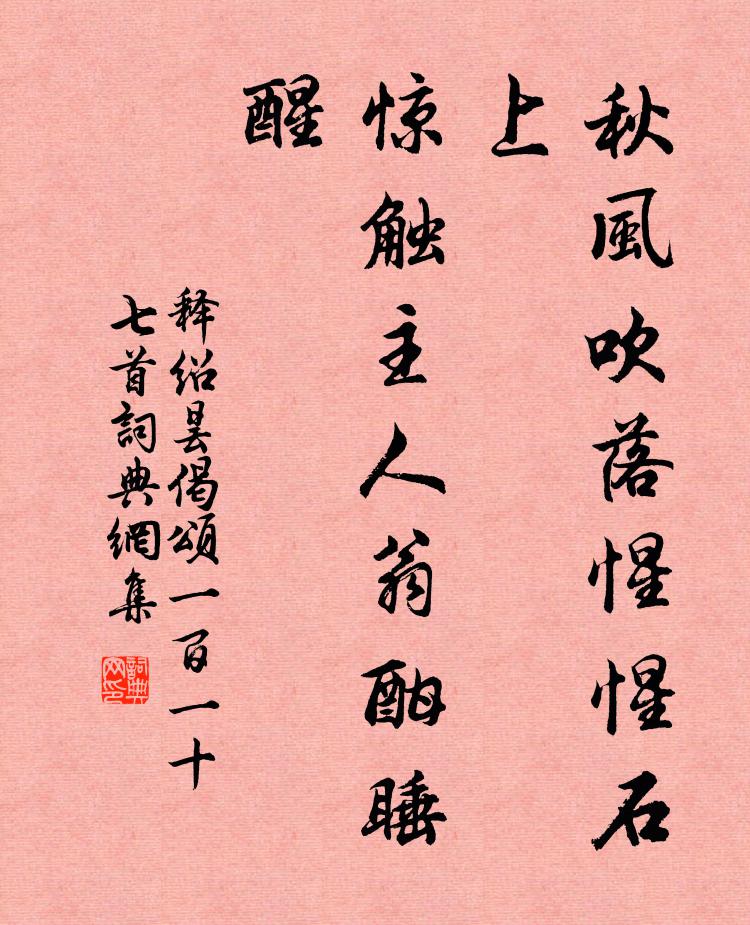 秋風吹落惺惺石
上
惊触主人翁酣睡
醒
释绍昙偈頌一百一十
七首詞典網集
詞典
网印